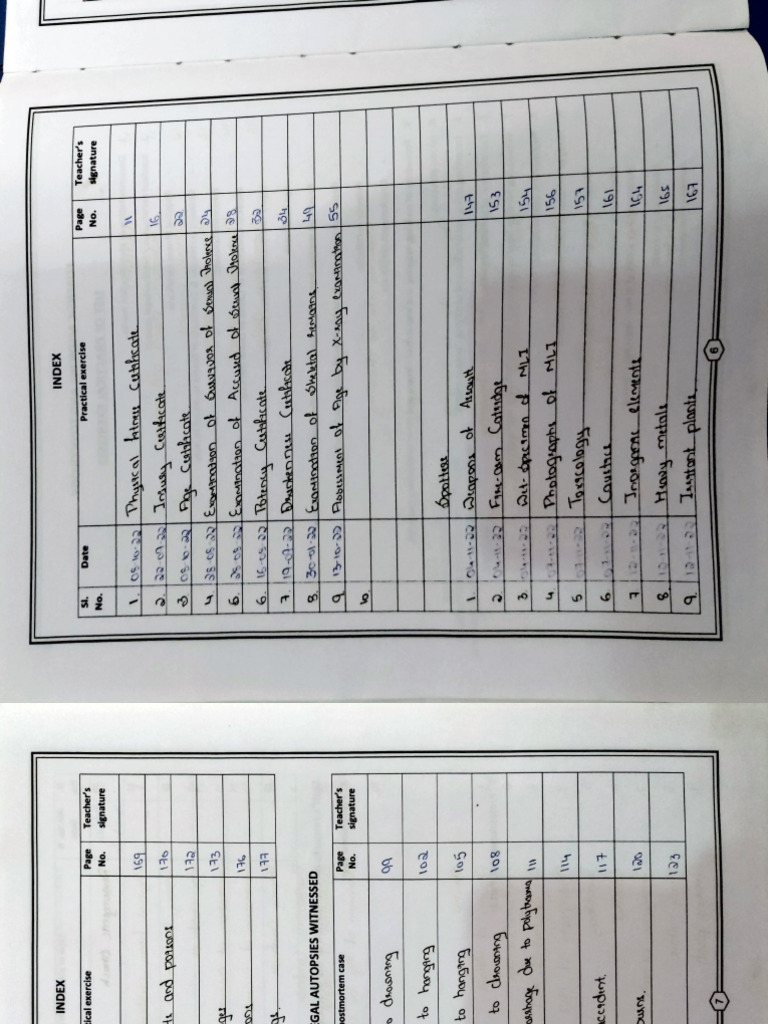 INDEX
Sl. No. Date Practical exercise Page No. Teacher's signature
1. 03-10-22 Physical fitness Certificate 11
2. 22-09-22 Injury Certificate 16
3 03-10-22 Age Certificate 22
4 Examination of Survivor of Sexual Violence 24
5. Examination of Accused of Sexual Violence 28
6. Potency Certificate 32
7. 19-09-22 Drunkenness Certificate 34
8. Examination of Skeletal Remains 49
9 13-10-22 Assessment of Age by X-ray examination 55
10.
Spotters
1 04-11-22 Weapons of Assault 147
2 04-11-22 Fire-arm Catridge 153
3. 04-11-22 Wet-Specimen of MLI 154
4 07-11-22 Photographs of MLI 156
5 07-11-22 Toxicology 157
6. 07-11-22 Caustics 161
7 12-11-22 Inorganic elements 164
8 12-11-22 Heavy metals 165
9. 12-11-22 Irritant plants. 167
6
INDEX
tical exercise Page No. Teacher's signature
169
ts and poisons 170
172
ges 173
ons 176
gs. 177
EGAL AUTOPSIES WITNESSED
postmortem case Page No. Teacher's signature
o drowning 99
to hanging 102
to hanging 105
to drowning 108
orrhage due to polytrauma 111
114
accident. 117
burns. 120
123
7